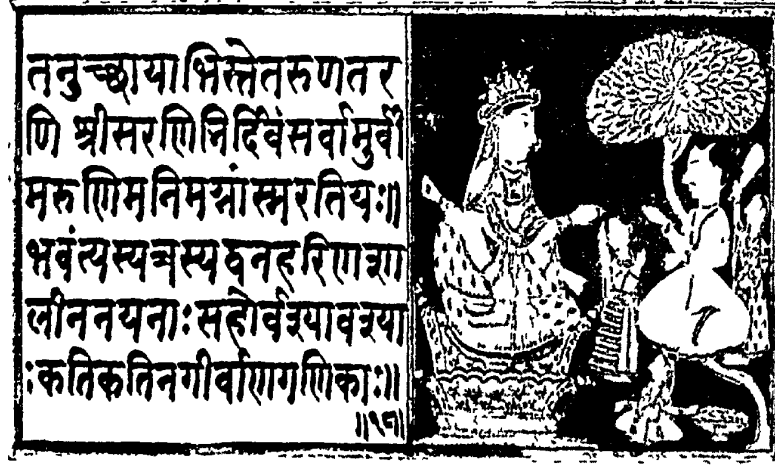 तनुच्छायाभिस्तेतरुणतर
णि श्रीसरणिभिर्दिवंसर्वामुर्वी
मरुणिमनिमग्नांस्मरतियः॥
भवंत्यस्यत्रस्यद्वनहरिणशा
लीननयनाः सहोर्वश्यावश्या
ःकतिकतिनगीर्वाणगणिकाः॥
॥१८॥